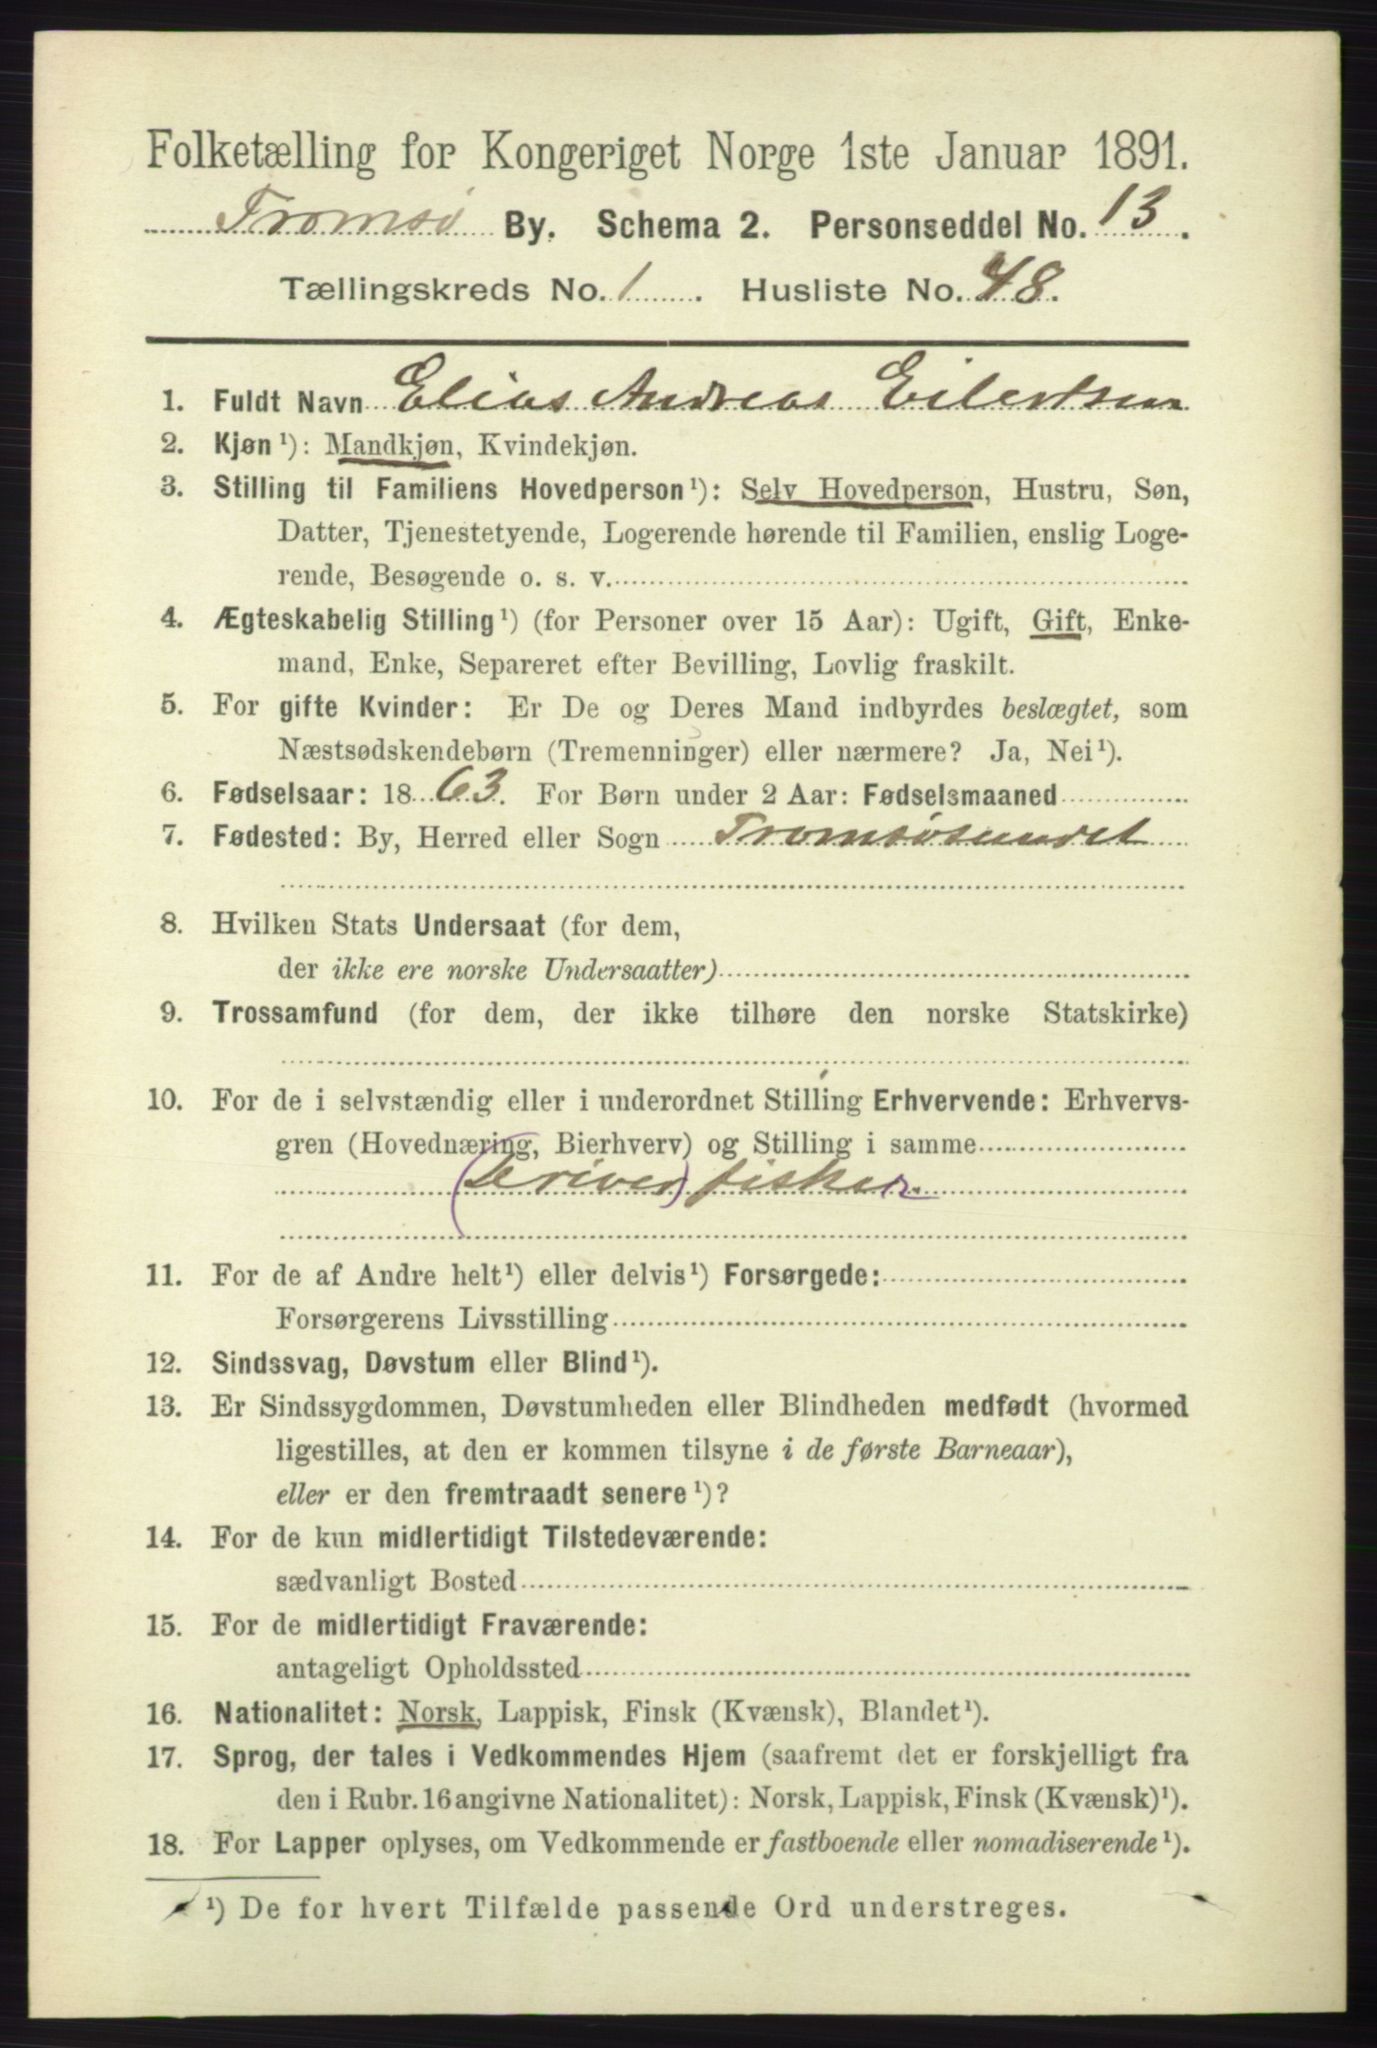 Folketælling for Kongeriget Norge 1ste Januar 1891.
Tromsø By. Schema 2. Personseddel No. 13.
Tællingskreds No. 1. Husliste No. 48.
1. Fuldt Navn Elias Andreas Eilertsen
2. Kjøn¹): Mandkjøn, Kvindekjøn.
3. Stilling til Familiens Hovedperson¹): Selv Hovedperson, Hustru, Søn,
Datter, Tjenestetyende, Logerende hørende til Familien, enslig Loge-
rende, Besøgende o. s. v.
4. Ægteskabelig Stilling¹) (for Personer over 15 Aar): Ugift, Gift, Enke-
mand, Enke, Separeret efter Bevilling, Lovlig fraskilt.
5. For gifte Kvinder: Er De og Deres Mand indbyrdes beslægtet, som
Næstsødskendebørn (Tremenninger) eller nærmere? Ja, Nei¹).
6. Fødselsaar: 1863. For Børn under 2 Aar: Fødselsmaaned
7. Fødested: By, Herred eller Sogn Tromsøsundet
8. Hvilken Stats Undersaat (for dem,
der ikke ere norske Undersaatter)
9. Trossamfund (for dem, der ikke tilhøre den norske Statskirke)
10. For de i selvstændig eller i underordnet Stilling Erhvervende: Erhvervs-
gren (Hovednæring, Bierhverv) og Stilling i samme
(Driver) fisker
11. For de af Andre helt¹) eller delvis¹) Forsørgede:
Forsørgerens Livsstilling
12. Sindssvag, Døvstum eller Blind¹).
13. Er Sindssygdommen, Døvstumheden eller Blindheden medfødt (hvormed
ligestilles, at den er kommen tilsyne i de første Barneaar),
eller er den fremtraadt senere¹)?
14. For de kun midlertidigt Tilstedeværende:
sædvanligt Bosted
15. For de midlertidigt Fraværende:
antageligt Opholdssted
16. Nationalitet: Norsk, Lappisk, Finsk (Kvænsk), Blandet¹).
17. Sprog, der tales i Vedkommendes Hjem (saafremt det er forskjelligt fra
den i Rubr. 16 angivne Nationalitet): Norsk, Lappisk, Finsk (Kvænsk)¹).
18. For Lapper oplyses, om Vedkommende er fastboende eller nomadiserende¹).
¹) De for hvert Tilfælde passende Ord understreges.